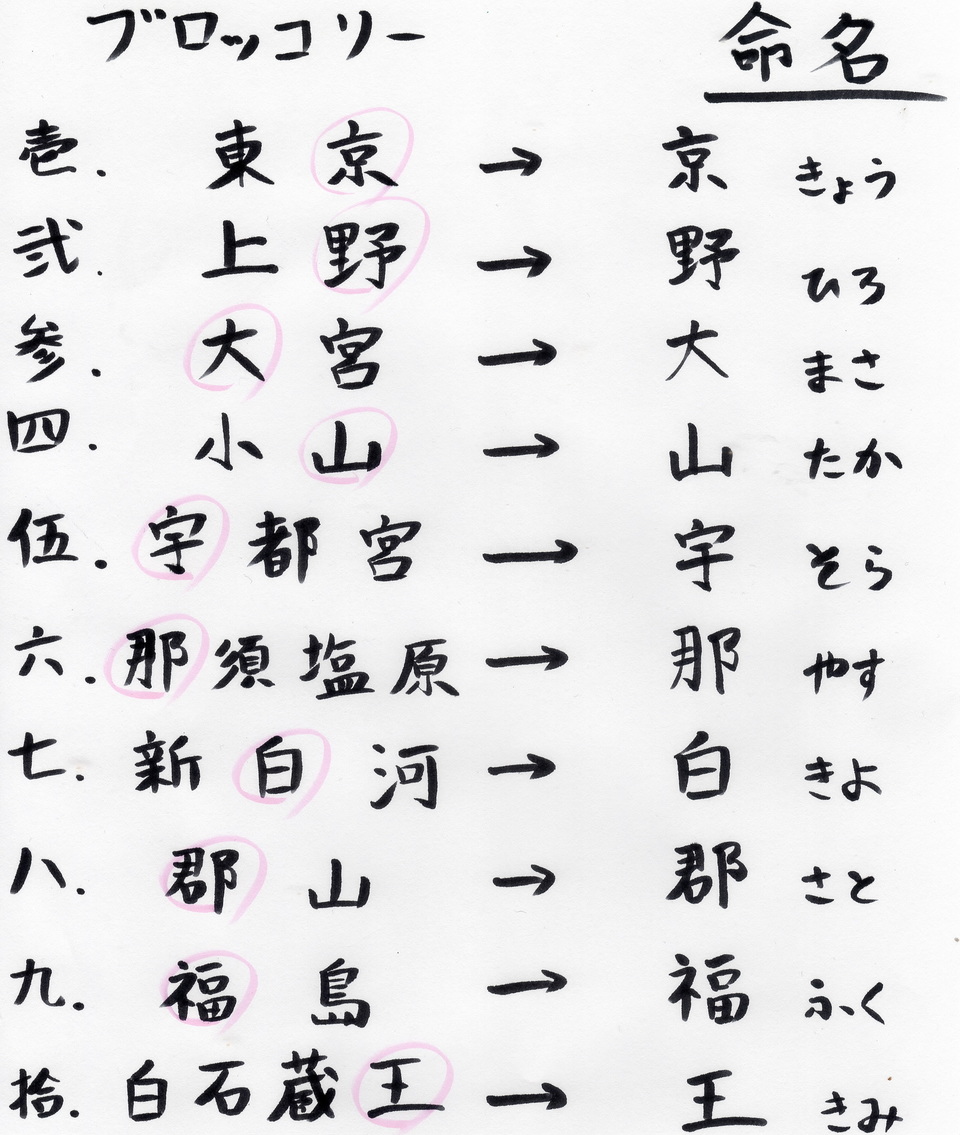 ブロッコリー 命名
壱. 東京 → 京 きょう
弐. 上野 → 野 ひろ
参. 大宮 → 大 まさ
四. 小山 → 山 たか
伍. 宇都宮 → 宇 そら
六. 那須塩原 → 那 やす
七. 新白河 → 白 きよ
八. 郡山 → 郡 さと
九. 福島 → 福 ふく
拾. 白石蔵王 → 王 きみ